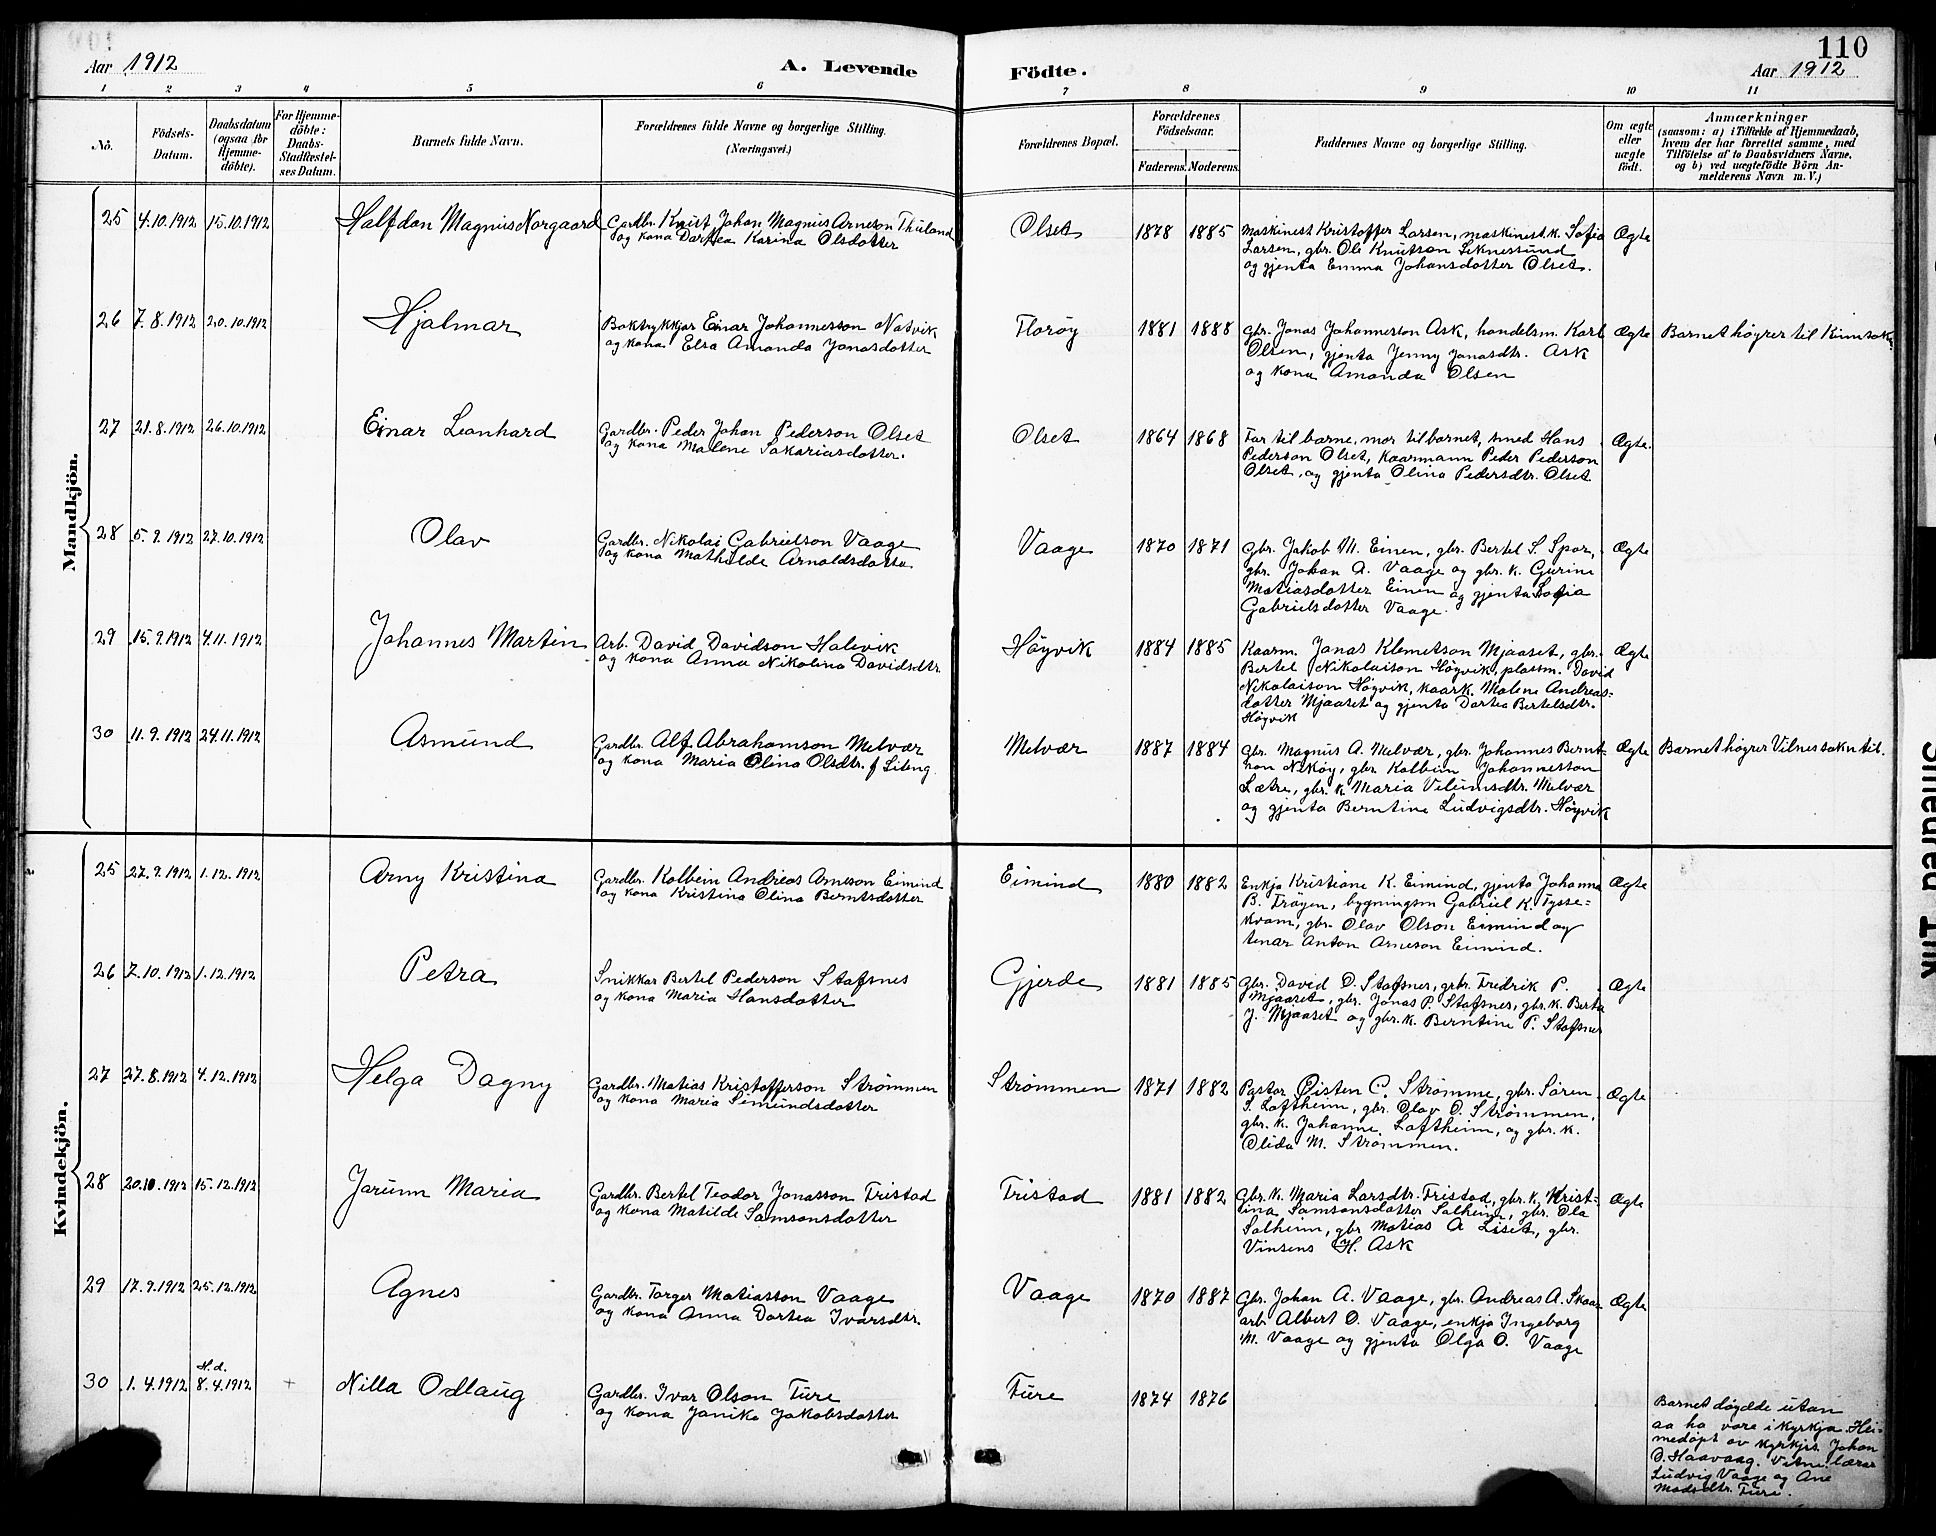 Aar 1912
A. Levende
Födte.
110
Aar 1912
1 2 3 4 5 6 7 8 9 10 11
No.
Födsels-
Datum.
Daabsdatum
(ogsaa for
Hjemme-
döbte).
For Hjemme-
döbte:
Daabs-
Stadfæstel-
ses Datum.
Barnets fulde Navn.
Forældrenes fulde Navne og borgerlige Stilling.
(Næringsvei.)
Forældrenes Bopæl.
Forældrenes
Födselsaar.
Faderens. Moderens.
Faddernes Navne og borgerlige Stilling.
Om ægte
eller
uægte
födt.
Anmærkninger
(saasom: a) i Tilfælde af Hjemmedaab,
hvem der har forrettet samme, med
Tilföielse af to Daabsvidners Navne,
og b) ved uægtefödte Börn An-
melderens Navn m. V.)
Mandkjön.
25 4.10.1912 15.10.1912 Halfdan Magnus Norgaard
Gardbr. Knut Johan Magnus Arneson Thuland
og kona Dortea Karina Olsdotter
Olset 1878 1885
Maskinist Kristoffer Larsen, maskinist.k. Sofia
Larsen, gbr. Ole Knutson Liknessund
og gjenta Emma Johansdotter Olset.
Ægte
26 7.8.1912 20.10.1912 Hjalmar
Boktrykkjar Einar Johannesson Natvik
og kona Elsa Amanda Jonasdotter
Florøy 1881 1888
gbr. Jonas Johanneson Ask, handelsm. Karl
Olsen, gjenta Jenny Jonasdtr. Ask
og kona Amanda Olsen
Ægte
Barnet høyrer til Kinn sokn
27 21.8.1912 26.10.1912 Einar Leonhard
Gardbr. Peder Johan Pederson Olset
og kona Malene Sakariasdotter.
Olset 1864 1868
Far til barne, mor til barnet, smed Hans
Pederson Olset, kaarmann Peder Pederson
Olset, og gjenta Olina Pedersdtr. Olset
Ægte.
28 5.9.1912 27.10.1912 Olav
Gardbr. Nikolai Gabrielson Vaage
og kona Mathilde Arnoldsdotter
Vaage 1870 1871
Gbr. Jakob M. Einen, gbr. Bertel S. Spor,
gbr. Johan A. Vaage og gbr. k. Gurine
Matiasdotter Einen og gjenta Sofia
Gabrielsdotter Vaage.
Ægte
29 15.9.1912 4.11.1912 Johannes Martin
Arb. David Davidson Halevik
og kona Anna Nikolina Davidsdtr.
Høyvik 1884 1885
Kaarm. Jonas Klemetson Mjaaset, gbr.
Bertel Nikolaison Høyvik, plassm. David
Nikolaison Høyvik, kaark. Malene Andreas-
dotter Mjaaset og gjenta Dortea Bertelsdtr.
Høyvik
Ægte
30 11.9.1912 24.11.1912 Asmund
Gardbr. Alf Abrahamson Melvær
og kona Maria Olina Olsdtr. f
Melvær 1887 1884
Gbr. Magnus A. Melvær, gbr. Johannes Bernt-
son Nikøy, gbr. Kolbein Johannesson
Lætre, gbr. k Maria Vilumsdtr. Melvær
og gjenta Berntine Ludvigsdtr. Høyvik
Ægte
Barnet høyrer Vilnes sokn til.
Kvindekjön.
25 27.9.1912 1.12.1912 Arny Kristina
Gardbr. Kolbein Andreas Arneson Eimind
og kona Kristina Olina Berntsdotter
Eimind 1880 1882
Enkja Kristiane K. Eimind, gjenta Johanna
B. Frøyen, bygningsm Gabriel K. Tysse-
kvam, gbr. Olav Olson Eimind og
tenar Anton Arneson Eimind.
Ægte
26 7.10.1912 1.12.1912 Petra
Snikkar Bertel Pederson Stafsnes
og kona Maria Hansdotter
Gjerde 1881 1885
Gbr. David D. Stafsnes, gbr. Fredrik P.
Mjaaset, gbr. Jonas P. Stafsnes, gbr.k. Berta
J. Mjaaset og gbr.k. Berntine P. Stafsnes
Ægte
27 27.8.1912 4.12.1912 Helga Dagny
Gardbr. Matias Kristofferson Strømmen
og kona Maria Simundsdotter
Strømmen 1871 1882
Pastor Øisten C. Strømme, gbr. Søren
S. Loftheim, gbr. Olav O. Strømmen,
gbr. k. Johanne Loftheim, og gbr. k.
Olida M. Strømmen.
Ægte
28 20.10.1912 15.12.1912 Jarunn Maria
Gardbr. Bertel Teodor Jonasson Fristad
og kona Matilde Samsonsdotter
Fristad 1881 1882
Gbr. k. Maria Larsdtr. Fristad, gbr. k. Krist-
ina Samsonsdotter Solheim, gbr. Ola
Solheim, gbr Matias A Liset, gbr.
Vinsens H. Ask
Ægte
29 17.9.1912 25.12.1912 Agnes
Gardbr. Torger Matiasson Vaage
og kona Anna Dortea Ivarsdtr.
Vaage 1870 1887
Gbr. Johan A. Vaage, gbr. Andreas A. Skaar
arb Albert O. Vaage, enkja Ingeborg
M. Vaage og gjenta Olga O. Vaage
Ægte
30 1.4.1912 H.d. 8.4.1912 + Nilla Odlaug
Gardbr. Ivar Olson Fure
og kona Janike Jakobsdotter
Fure 1874 1876
Barnet døydde utan
aa ha vore i kyrkja. Hei-
medøpt av kyrkjes. Johan
O. Haavaag. Vitne: lærar
Ludvig Vaage og Ane
Madsdtr. Fure.